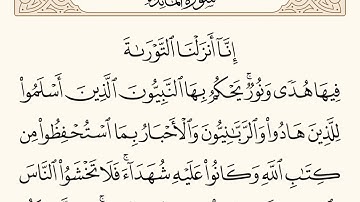 سورة المائدة
إِنَّآ أَنزَلْنَا ٱلتَّوْرَىٰةَ
فِيهَا هُدًى وَنُورٌ ۚ يَحْكُمُ بِهَا ٱلنَّبِيُّونَ ٱلَّذِينَ أَسْلَمُوا۟
لِلَّذِينَ هَادُوا۟ وَٱلرَّبَّـٰنِيُّونَ وَٱلْأَحْبَارُ بِمَا ٱسْتُحْفِظُوا۟ مِن
كِتَـٰبِ ٱللَّهِ وَكَانُوا۟ عَلَيْهِ شُهَدَآءَ ۚ فَلَا تَخْشَوُا۟ ٱلنَّاسَ